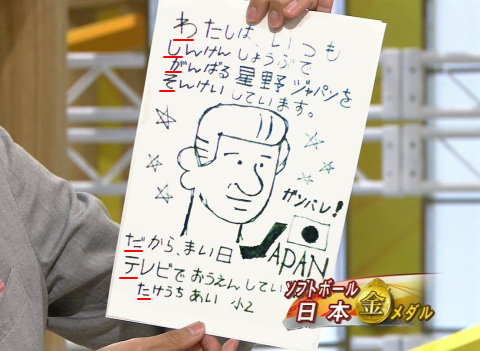 わたしは、いつも
しんけんしょうぶで
がんばる星野ジャパンを
そんけいしています。
ガンバレ!
JAPAN
だから、まい日
テレビでおうえんしてい
たけうちあい 小2
ソフトボール
日本金メダル